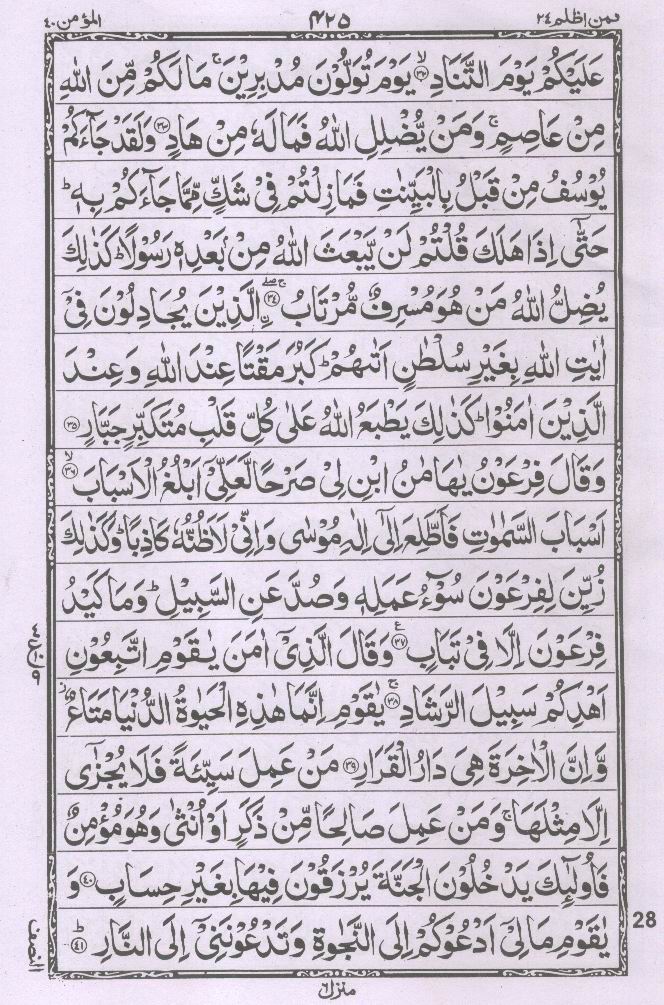 فمن اظلم ٢٤ ٤٢٥ المؤمن ٤٠
عَلَيْكُمْ يَوْمَ التَّنَادِ ﴿٣٢﴾ۙ يَوْمَ تُوَلُّوْنَ مُدْبِرِيْنَ ۚ مَا لَكُمْ مِّنَ اللّٰهِ
مِنْ عَاصِمٍ ۚ وَمَنْ يُّضْلِلِ اللّٰهُ فَمَا لَهٗ مِنْ هَادٍ ﴿٣٣﴾ وَلَقَدْ جَآءَكُمْ
يُوْسُفُ مِنْ قَبْلُ بِالْبَيِّنٰتِ فَمَا زِلْتُمْ فِيْ شَكٍّ مِّمَّا جَآءَكُمْ بِهٖ ؕ
حَتّٰٓى اِذَا هَلَكَ قُلْتُمْ لَنْ يَّبْعَثَ اللّٰهُ مِنْۢ بَعْدِهٖ رَسُوْلًا ؕ كَذٰلِكَ
يُضِلُّ اللّٰهُ مَنْ هُوَ مُسْرِفٌ مُّرْتَابُ ﴿٣٤﴾ ۨالَّذِيْنَ يُجَادِلُوْنَ فِيْٓ
اٰيٰتِ اللّٰهِ بِغَيْرِ سُلْطٰنٍ اَتٰىهُمْ ؕ كَبُرَ مَقْتًا عِنْدَ اللّٰهِ وَعِنْدَ
الَّذِيْنَ اٰمَنُوْا ؕ كَذٰلِكَ يَطْبَعُ اللّٰهُ عَلٰى كُلِّ قَلْبِ مُتَكَبِّرٍ جَبَّارٍ ﴿٣٥﴾
وَقَالَ فِرْعَوْنُ يٰهَامٰنُ ابْنِ لِيْ صَرْحًا لَّعَلِّيْٓ اَبْلُغُ الْاَسْبَابَ ﴿٣٦﴾ۙ
اَسْبَابَ السَّمٰوٰتِ فَاَطَّلِعَ اِلٰٓى اِلٰهِ مُوْسٰى وَاِنِّيْ لَاَظُنُّهٗ كَاذِبًا ؕ وَكَذٰلِكَ
زُيِّنَ لِفِرْعَوْنَ سُوْٓءُ عَمَلِهٖ وَصُدَّ عَنِ السَّبِيْلِ ؕ وَمَا كَيْدُ
فِرْعَوْنَ اِلَّا فِيْ تَبَابٍ ﴿٣٧﴾ ع وَقَالَ الَّذِيْٓ اٰمَنَ يٰقَوْمِ اتَّبِعُوْنِ
اَهْدِكُمْ سَبِيْلَ الرَّشَادِ ﴿٣٨﴾ۚ يٰقَوْمِ اِنَّمَا هٰذِهِ الْحَيٰوةُ الدُّنْيَا مَتَاعٌ ؗ
وَّاِنَّ الْاٰخِرَةَ هِيَ دَارُ الْقَرَارِ ﴿٣٩﴾ مَنْ عَمِلَ سَيِّئَةً فَلَا يُجْزٰٓى
اِلَّا مِثْلَهَا ۚ وَمَنْ عَمِلَ صَالِحًا مِّنْ ذَكَرٍ اَوْ اُنْثٰى وَهُوَ مُؤْمِنٌ
فَاُولٰٓئِكَ يَدْخُلُوْنَ الْجَنَّةَ يُرْزَقُوْنَ فِيْهَا بِغَيْرِ حِسَابٍ ﴿٤٠﴾ وَ
يٰقَوْمِ مَا لِيْٓ اَدْعُوْكُمْ اِلَى النَّجٰوةِ وَتَدْعُوْنَنِيْٓ اِلَى النَّارِ ﴿٤١﴾ؕ
النصف
28
منزل ٦